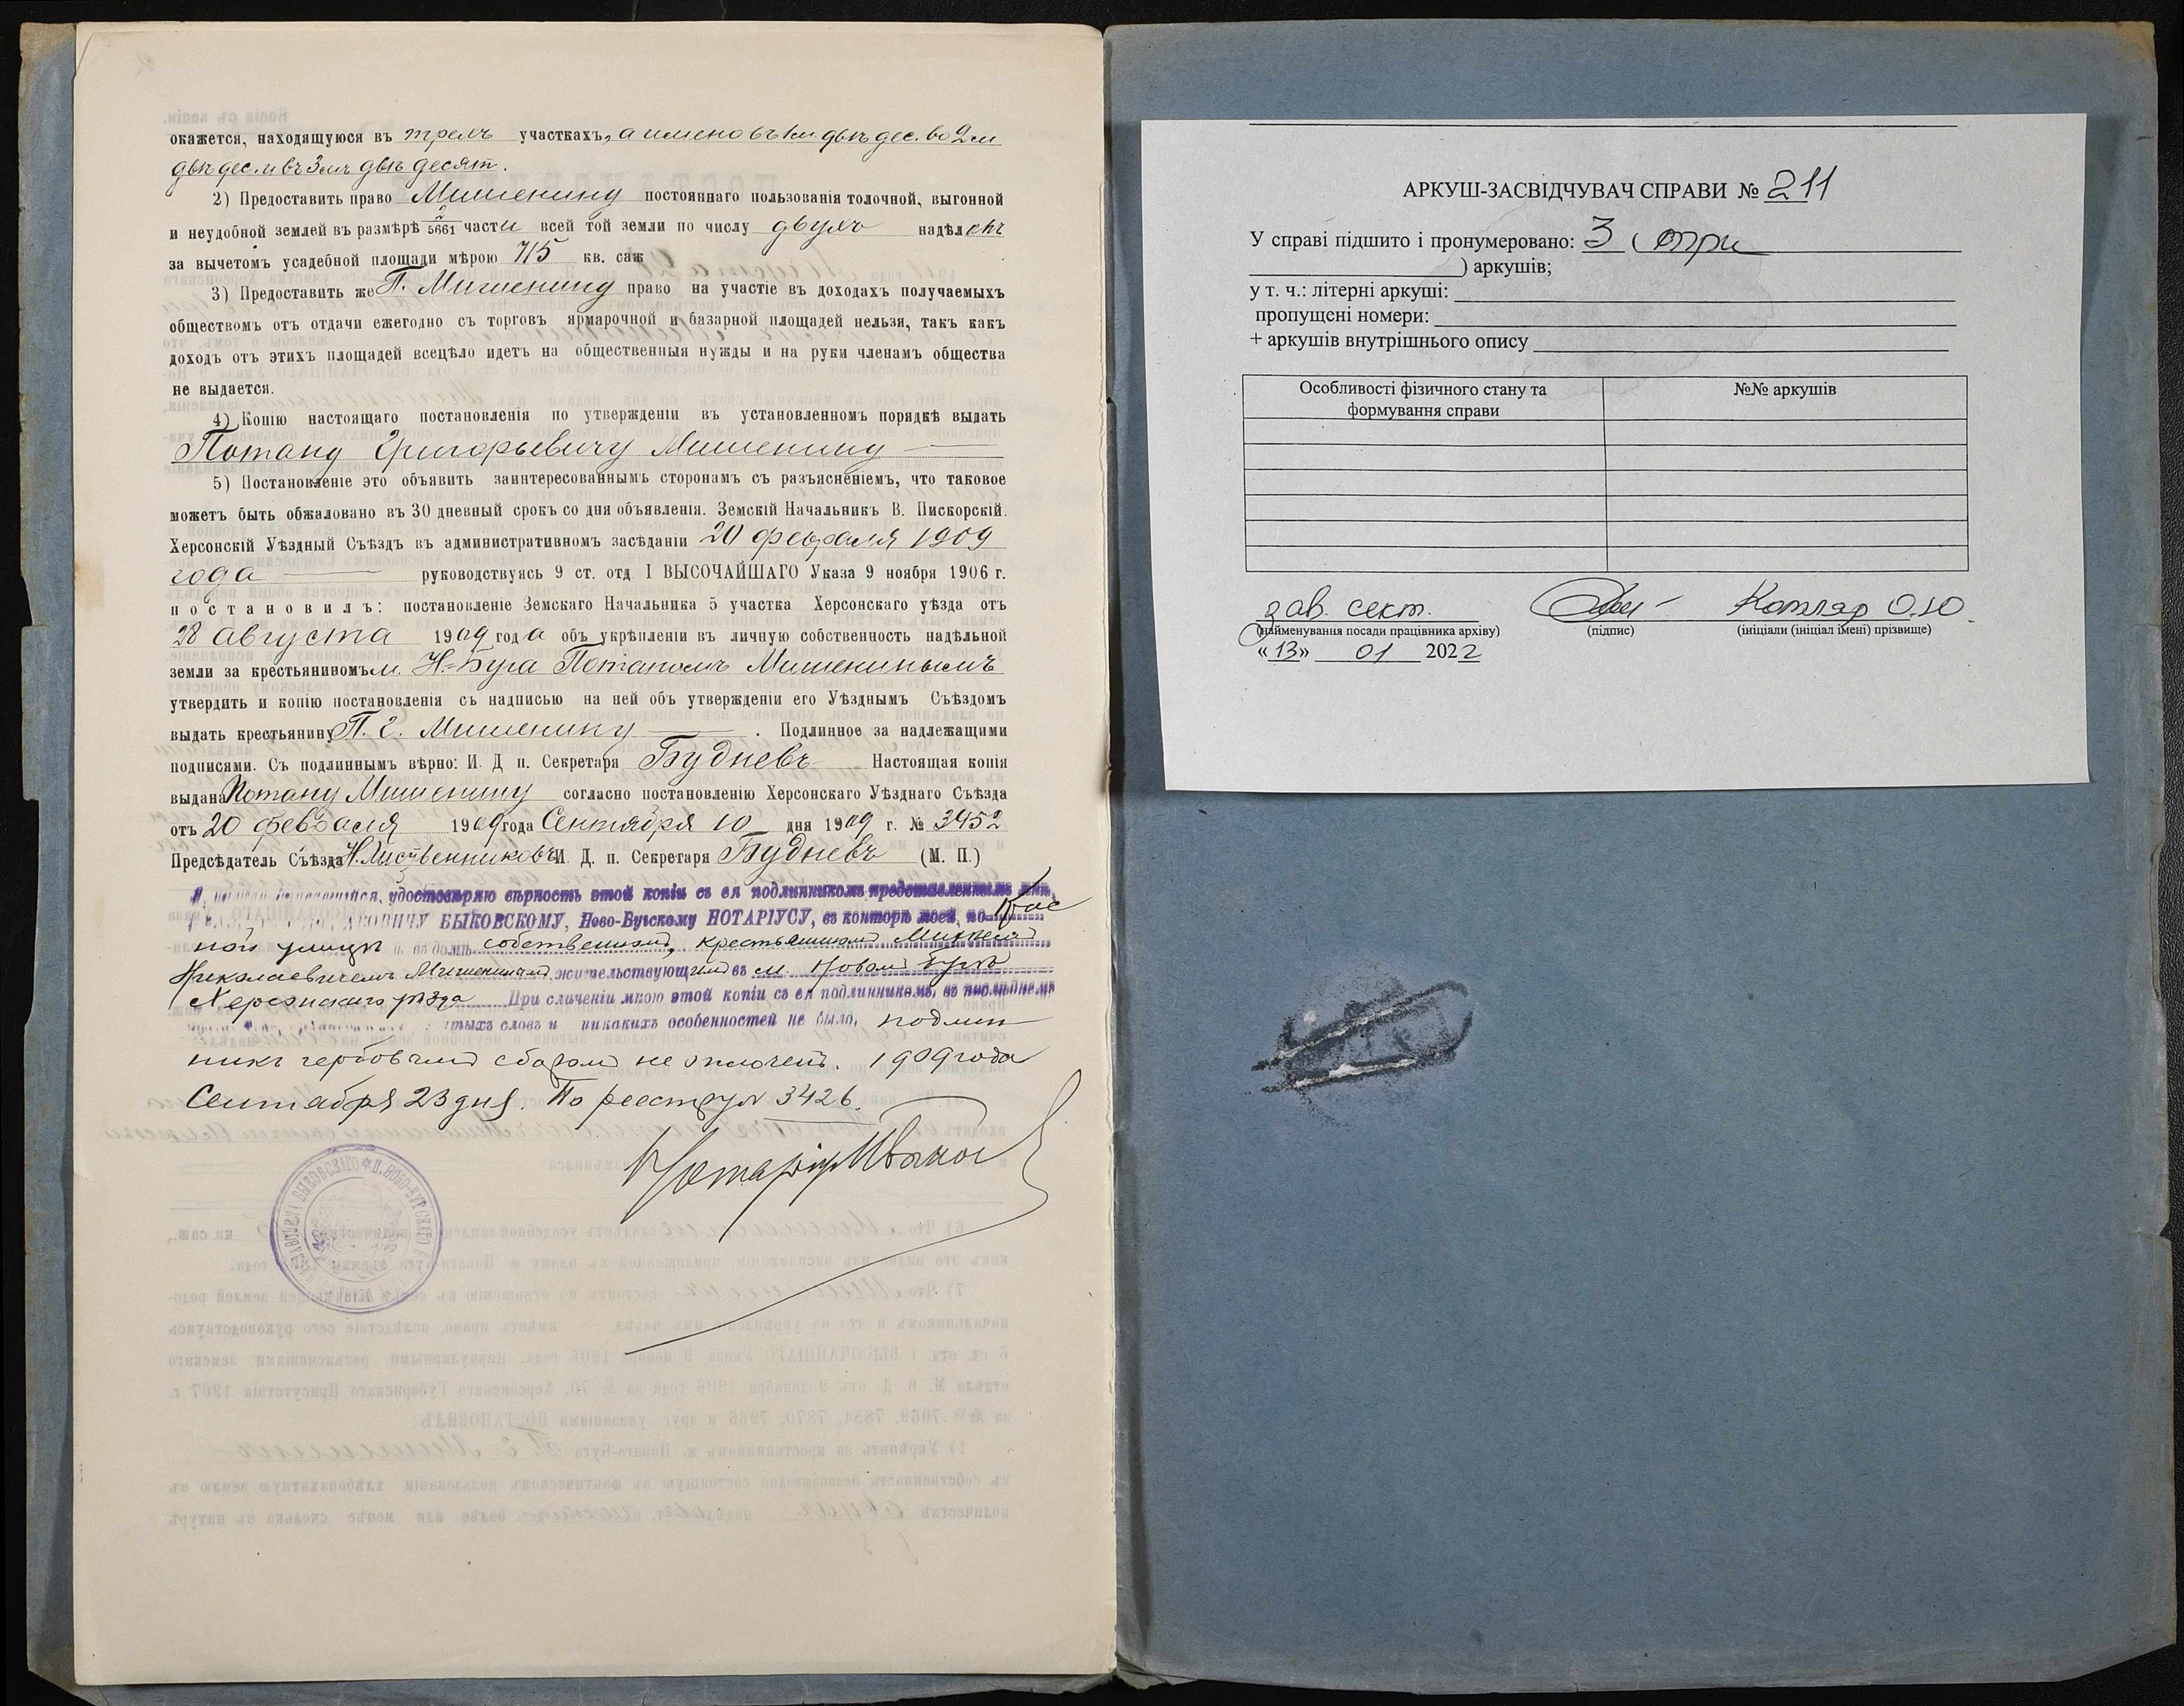 окажется, находящуюся въ трехъ участкахъ, а имено въ 1мъ двѣ дес. во 2мъ
двѣ дес. и въ 3мъ двѣ десят.
2) Предоставить право Мишенину постояннаго пользованія толочной, выгонной
и неудобной землей въ размѣрѣ 2/5661 части всей той земли по числу двухъ надѣловъ
за вычетомъ усадебной площади мѣрою 715 кв. саж
3) Предоставить же П. Мишенину право на участіе въ доходахъ получаемыхъ
обществомъ отъ отдачи ежегодно съ торговъ ярмарочной и базарной площадей нельзя, такъ какъ
доходъ отъ этихъ площадей всецѣло идетъ на общественныя нужды и на руки членамъ общества
не выдается.
4) Копію настоящаго постановленія по утвержденіи въ установленномъ порядкѣ выдать
Потапу Григорьевичу Мишенину
5) Постановленіе это объявить заинтересованнымъ сторонамъ съ разъясненіемъ, что таковое
можетъ быть обжаловано въ 30 дневный срокъ со дня объявленія. Земскій Начальникъ В. Пискорскій.
Херсонскій Уѣздный Съѣздъ въ административномъ засѣданіи 20 февраля 1909
года руководствуясь 9 ст. отд I ВЫСОЧАЙШАГО Указа 9 ноября 1906 г.
постановилъ: постановленіе Земскаго Начальника 5 участка Херсонскаго уѣзда отъ
28 августа 1909 года объ укрѣпленіи въ личную собственность надѣльной
земли за крестьяниномъ м. Н-Буга Потапомъ Мишенинымъ
утвердить и копію постановленія съ надписью на ней объ утвержденіи его Уѣзднымъ Съѣздомъ
выдать крестьянину П. Г. Мишенину . Подлинное за надлежащими
подписями. Съ подлиннымъ вѣрно: И. Д п. Секретаря Будневъ Настоящая копія
выдана Потапу Мишенину согласно постановленію Херсонскаго Уѣзднаго Съѣзда
отъ 20 февраля 1909 года Сентября 10 дня 1909 г. № 3452
Предсѣдатель Съѣзда Н. Лиственниковъ И. Д. п. Секретаря Будневъ (М. П.)
удостовѣряю вѣрность этой копіи съ ея подлинникомъ представленнымъ мнѣ,
БЫКОВСКОМУ, Ново-Бугскому НОТАРІУСУ, въ конторѣ моей, по
ной улицѣ въ домѣ собственномъ, крестьяниномъ
Николаевичемъ Мишенинымъ жительствующимъ въ м. Новомъ Бугѣ
Херсонскаго уѣзда При сличеніи мною этой копіи съ ея подлинникомъ, въ послѣднемъ
словъ и никакихъ особенностей не было, подлин
никъ гербовымъ сборомъ не оплоченъ. 1909 года
Сентября 23 дня. По реестру № 3426.
Нотаріусъ
АРКУШ-ЗАСВІДЧУВАЧ СПРАВИ № 211
У справі підшито і пронумеровано: 3 ( три
) аркушів;
у т. ч.: літерні аркуші:
пропущені номери:
+ аркушів внутрішнього опису
Особливості фізичного стану та формування справи
№№ аркушів
зав. сект. Котляр О.Ю.
(найменування посади працівника архіву) (підпис) (ініціали (ініціал імені) прізвище)
«13» 01 2022